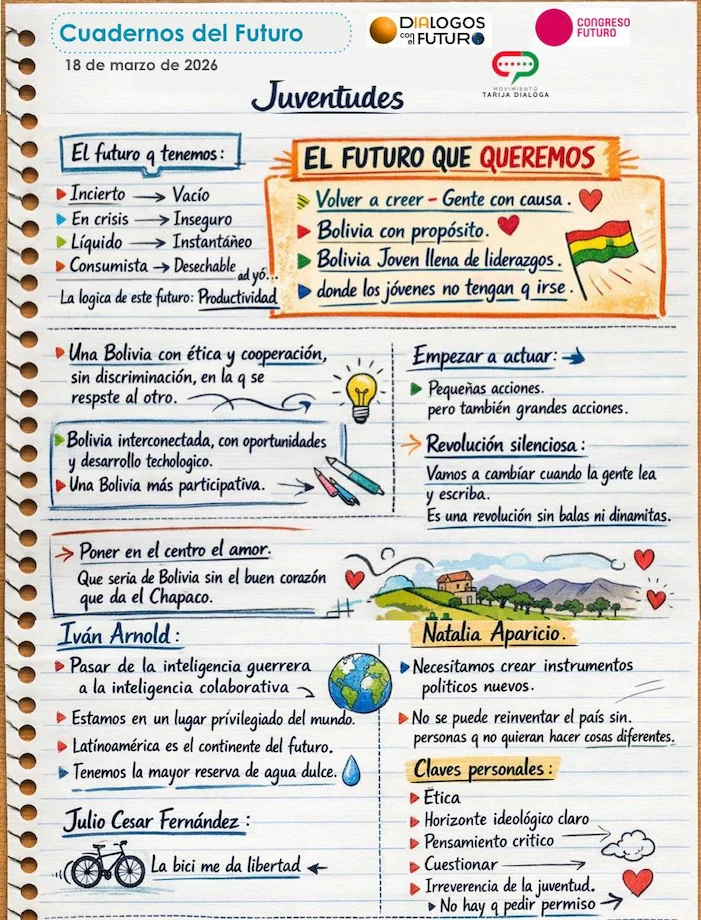 Cuadernos del Futuro
DIALOGOS
con el FUTURO
CONGRESO
FUTURO
18 de marzo de 2026
MOVIMIENTO
TARIJA DIALOGA
Juventudes
El futuro q tenemos:
Incierto → Vacío
En crisis → Inseguro
Líquido → Instantáneo
Consumista → Desechable
ad yó...
La logica de este futuro: Productividad
EL FUTURO QUE QUEREMOS
Volver a creer – Gente con causa.
Bolivia con propósito.
Bolivia Joven llena de liderazgos.
donde los jóvenes no tengan q irse.
Una Bolivia con ética y cooperación,
sin discriminación, en la q se
respste al otro.
Bolivia interconectada, con oportunidades
y desarrollo techologico.
Una Bolivia más participativa.
Empezar a actuar:
Pequeñas acciones.
pero también grandes acciones.
Revolución silenciosa:
Vamos a cambíar cuando la gente lea
y escriba.
Es una revolución sin balas ni dinamitas.
Poner en el centro el amor.
Que seria de Bolivia sin el buen corazón
que da el Chapaco.
Iván Arnold:
Pasar de la inteligencia guerrera
a la inteligencia colaborativa
Estamos en un lugar privilegiado del mundo.
Latínoamérica es el continente del futuro.
Tenemos la mayor reserva de agua dulce.
Julio Cesar Fernández:
La bici me da libertad
Natalia Aparicio.
Necesitamos crear instrumentos
politicos nuevos.
No se puede reinventar el país sin.
personas q no quieran hacer cosas diferentes.
Claves personales:
Ética
Horizonte ideológico claro
Pensamiento critico
Cuestionar
Irreverencia de la juventud.
No hay q pedir permiso